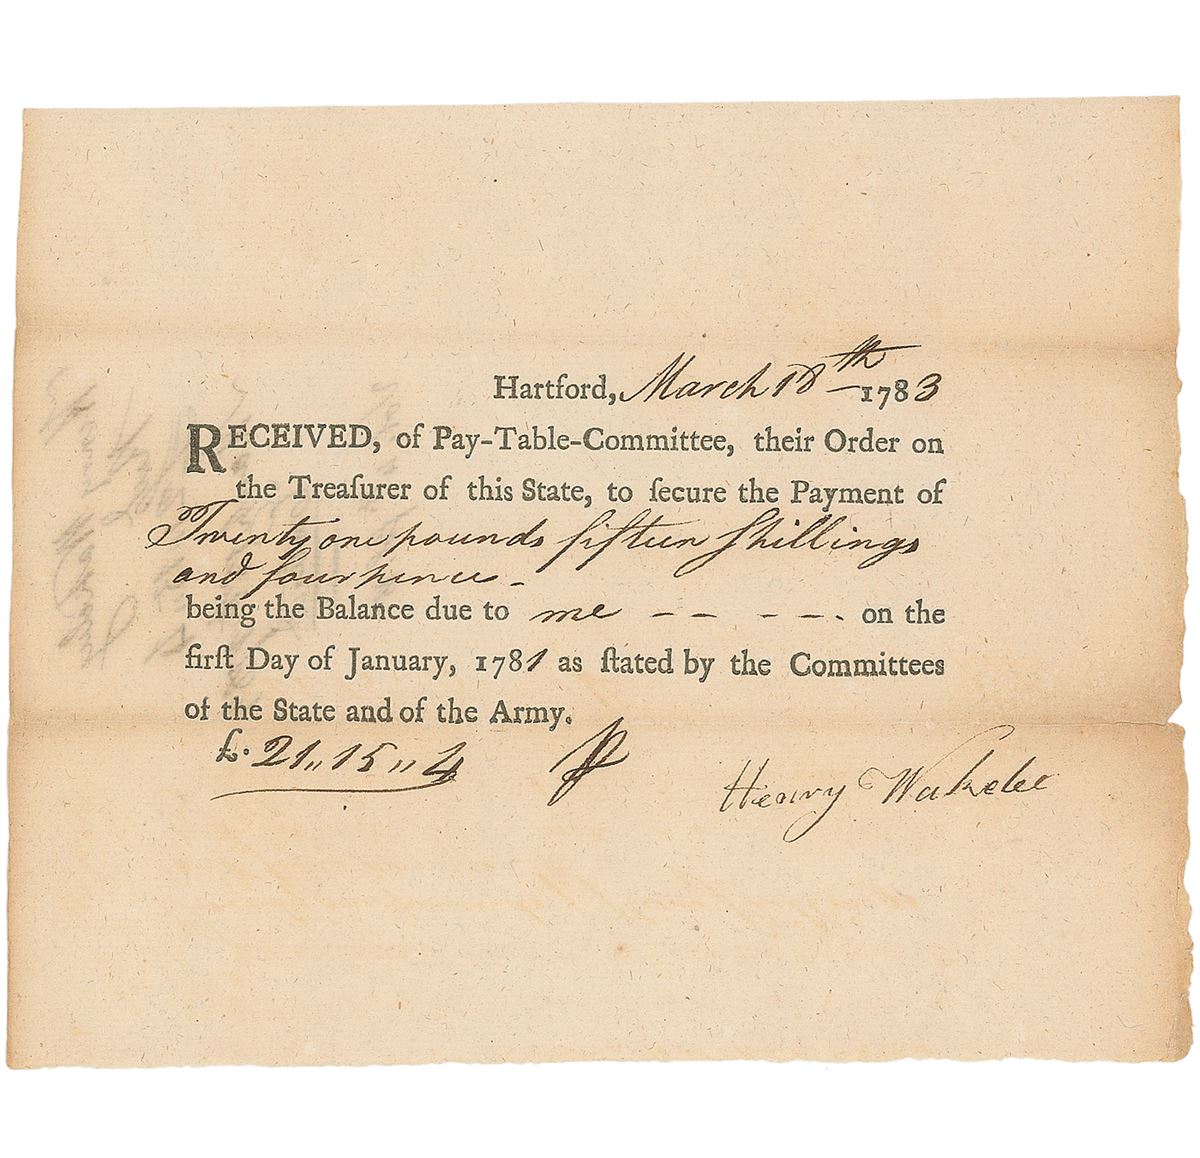 Hartford, March 18th 1783
RECEIVED, of Pay-Table-Committee, their Order on
the Treaſurer of this State, to ſecure the Payment of
Twenty one pounds fifteen Shillings
and four pence -
being the Balance due to me - - - - - on the
firſt Day of January, 1781 as ſtated by the Committees
of the State and of the Army.
£. 21,, 15,, 4
Henry Wakelee